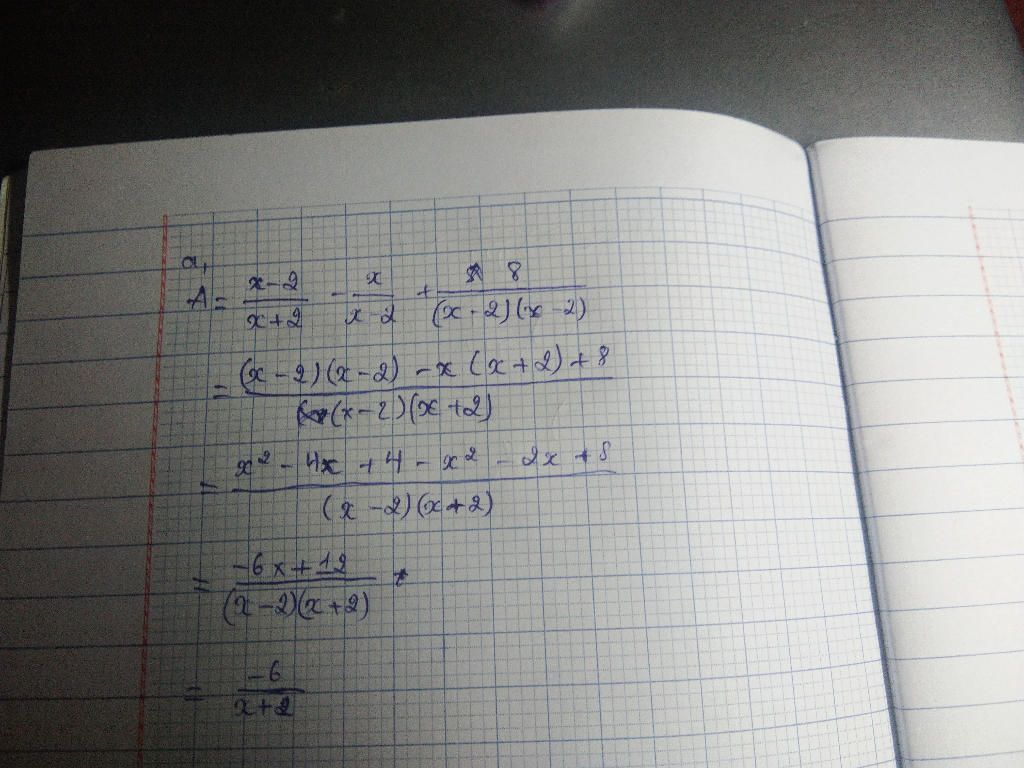 a,
A = \frac{x-2}{x+2} - \frac{x}{x-2} + \frac{8}{(x-2)(x-2)}
= \frac{(x-2)(x-2) - x(x+2) + 8}{(x-2)(x+2)}
= \frac{x² - 4x + 4 - x² - 2x + 8}{(x-2)(x+2)}
= \frac{-6x + 12}{(x-2)(x+2)}
= \frac{-6}{x+2}